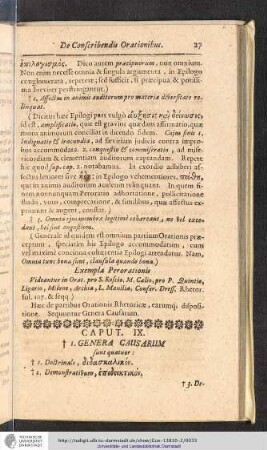 De Conscribendis Orationibus. 27
ἐπιλογισμός. Dico autem præcipuorum, non omnium.
Non enim necesse omnia & singula argumenta, in Epilogo
conglomerata, repetere; sed sufficit, si præcipua & potissima
breviter perstringantur.)
† 2. Affectum in animis auditorum pro materia diversitate relinquat.
(Dicitur hæc Epilogi pars vulgò
id est, amplificatio, quæ est gravior quædam affirmatio, quæ
motu animorum conciliat in dicendo fidem. Cujus sunt 1.
Indignatio & iracundia, ad severum judicis contra improbos
accommodata. 2. conquestio & commiseratio, ad misericordiam
& clementiam auditorum captandam. Repete
hic quoad sup. cap. 2. notabamus. In exordio adhiberi affectus
leniores sive ἤθη: in Epilogo vehementiores, πάθη,
qui in animis auditorum aculeum relinquant. Quare in
nonnullis Perorator adhortatione, pollicitatione
studii, voto, comprecatione, & similibus, quæ affectus exprimunt,
& conficiunt, finit.)
† 3. Omnia ejus membra legitimè cohæreant, ne vel excedant,
vel sint angustiora.
(Generale id quidem est omnium partium Orationis præceptum,
specialim hic Epilogo accommodatum, cum
vel maximè concinna cohærentia Epilogi attendatur. Nam,
Omnia tunc bona sunt, clausula quando bona.)
Exempla Perorationis
Videantur in Orat. pro S. Roscio, M. Cælio, pro P. Quintio,
Ligario, Milone, Archia, L. Manilia. Confer. Dress. Rhetor.
fol. 107. & seqq.)
Hæc de partibus Orationis Rhetoricæ, earumq; dispositione.
Sequuntur Genera Causarum.
CAPUT. IX.
† 1. GENERA CAUSARUM
sunt quatuor:
† 1. Doctrinale, διδασκαλικόν.
† 2. Demonstrativum, ἐπιδεικτικόν.
† 3. De-
http://tudigit.ulb.tu-darmstadt.de/show/Gue-13830-2/0033
Universitäts- und Landesbibliothek Darmstadt